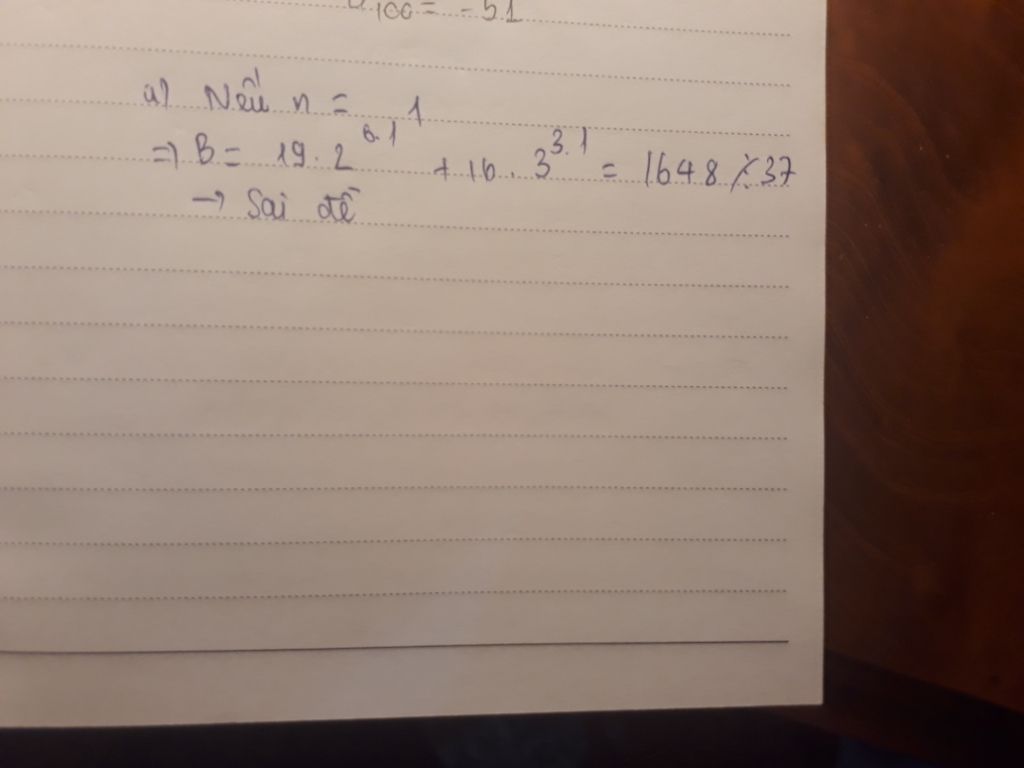 100 = -51
a) Nếu n = 1
=> B = 19. 2^6.1 + 16. 3^3.1 = 1648 ⋮̸ 37
→ Sai đề